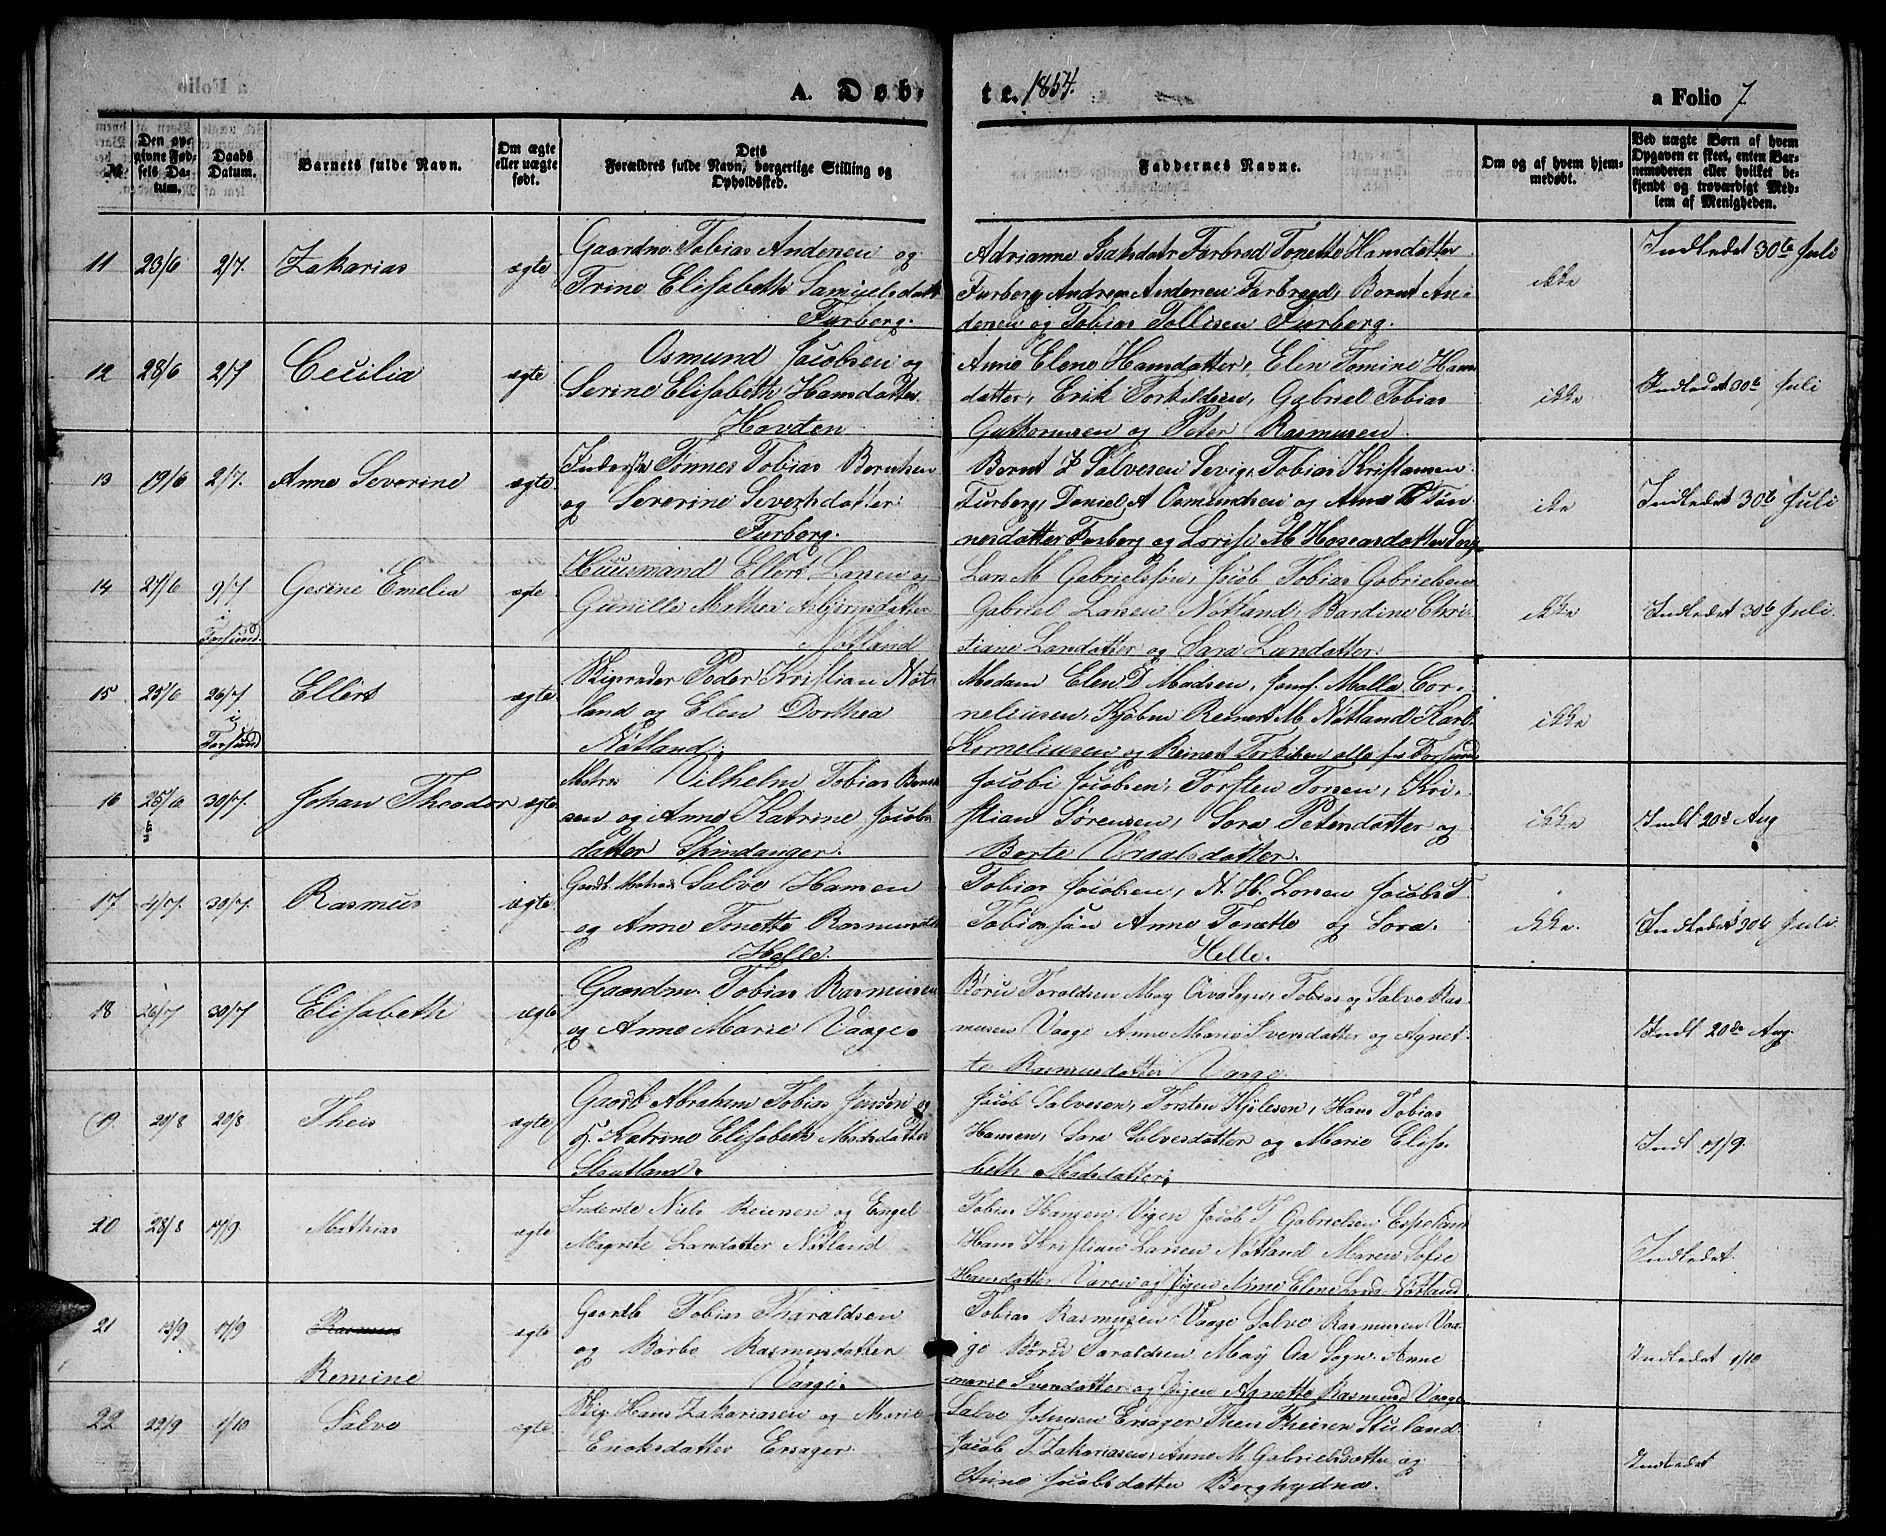 A. Døb-
te. 1854.
a Folio 7
№
Den opgivne Fødsels Datum.
Daabs Datum.
Barnets fulde Navn.
Om ægte eller uægte født.
Dets Forældres fulde Navn, borgerlige Stilling og Opholdssted.
Faddernes Navne.
Om og af hvem hjemmedøbt.
Ved uægte Børn af hvem Opgaven er skeet, enten Barnemoderen eller hvilket bekjendt og troværdigt Medlem af Menigheden.
11 23/6 2/7. Zakarias ægte
Gaardm. Tobias Andersen og
Trine Elisabeth Samuelsdatt
Furberg.
Adrianne Isaksdatr Furbred Tonette Hansdatter
Furberg Andreas Andersen Furbred, Bernt An-
dersen og Tobias Tollisen Furberg.
ikke
Indledet 30te Juli
12 28/6 2/7 Cecilia ægte
Osmund Jacobsen og
Serine Elisabeth Hansdatter
Hovden
Anne Elene Hansdatter, Elen Tomine Hans
datter, Erik Torkildsen, Gabriel Tobias
Guthormsen og Peter Rasmusen.
ikke
Indledet 30te Juli
13 19/6 2/7. Anne Severine ægte
Inderste Tønnes Tobias Berntsen
og Severine Sivertsdatter
Furberg.
Bernt Salvesen Sevig, Tobias Kristansen
Furberg, Daniel A Osmundsen og Anne Tøn-
nesdatter Furberg og Lovise M Hoseasdatter
ikke
Indledet 30te Juli
14 27/6 9/7 i Farsund Gesine Emelia ægte
Huusmand Ellert Larsen og
Gunille Mathea Asbjørnsdatter
Nøtland
Lars M Gabrielsen, Jacob Tobias Gabrielsen
Gabriel Larsen Nøtland, Bardine Chri-
stiane Larsdatter og Sara Larsdatter.
ikke
Indledet 30te Juli.
15 25/6 26/7 i Farsund Ellert ægte
Skipsreder Peder Kristian Nøt-
land og Elen Dorthea
Nøtland.
Madam Elen D Madsen, Jomf. Malla Cor-
neliussen, Kjøbm Reinert M Nøtland Karl
Korneliussen og Reinert alle fra Farsund
ikke
16 25/6 30/7. Johan Theodor ægte
Matros Vilhelm Tobias Bernt
sen og Anne Katrine Jacobs
datter Skindanger.
Jacob Jacobsen, Torsten Torsen, Kri-
stian Sørensen, Sara Petersdatter og
Berte Vraalsdatter.
ikke
Indl 20de Aug
17 4/7. 30/7. Rasmus ægte
Matros Salve Hansen
og Anne Tonette Rasmusdtr
Helle.
Tobias Jacobsen, N. H. Larsen Jacob T
Tobiassen Anne Tonette og Sara.
Helle.
ikke.
Indledet 30te Juli
18 26/7 30/7 Elisabeth ægte
Gaardm. Tobias Rasmusen
og Anne Marie Vaage.
Børu Taraldsen May Oa Sogn, Tobias og Salve Ras-
musen Vaage Anne Marie Iversdatter og Agnet-
te Rasmusdatter Vaage.
Indl 20de Aug.
19. 20/8 20/8 Theis ægte
Gaardb Abraham Tobias Jensen og
H. Katrine Elisabeth Madsdatter
Stautland.
Jacob Salvesen, Torsten Kjelesen, Hans Tobias
Hansen, Sara Salvesdatter og Marie Elisa-
beth Madsdatter.
Indl 17/9.
20 28/8 17/9 Mathias ægte
Inderste Niels Reiersen og Engel
Magrete Larsdatter Nøtland
Tobias Hansen Vigen Jacob T Gabrielsen Espeland
Hans Kristian Larsen Nøtland Maren Sofie
Hansdatter Varen og Pigen Anne Elene Nøtland
Indledet.
21 13/9 17/9 Rasmus
Remine ægte
Gaardb Tobias Tharaldsen
og Børbe Rasmusdatter
Vaage.
Tobias Rasmusen Vaage Salve Rasmusen Vaa-
ge Børu Taraldsen May Oa Sogn, Anne
marie Iversdatter og Pigen Agnette Rasmusd Vaage
Indledet 1/10
22 22/9 1/10 Salve ægte
Skip. Hans Zakariasen og Marie
Enoksdatter Ersager
Salve Johnsen Ersager Theis Theisen Stuland
Jacob T. Zakariasen, Anne M. Gabrielsdatter og
Anne Jacobsdatter Berghydna.
Indledet